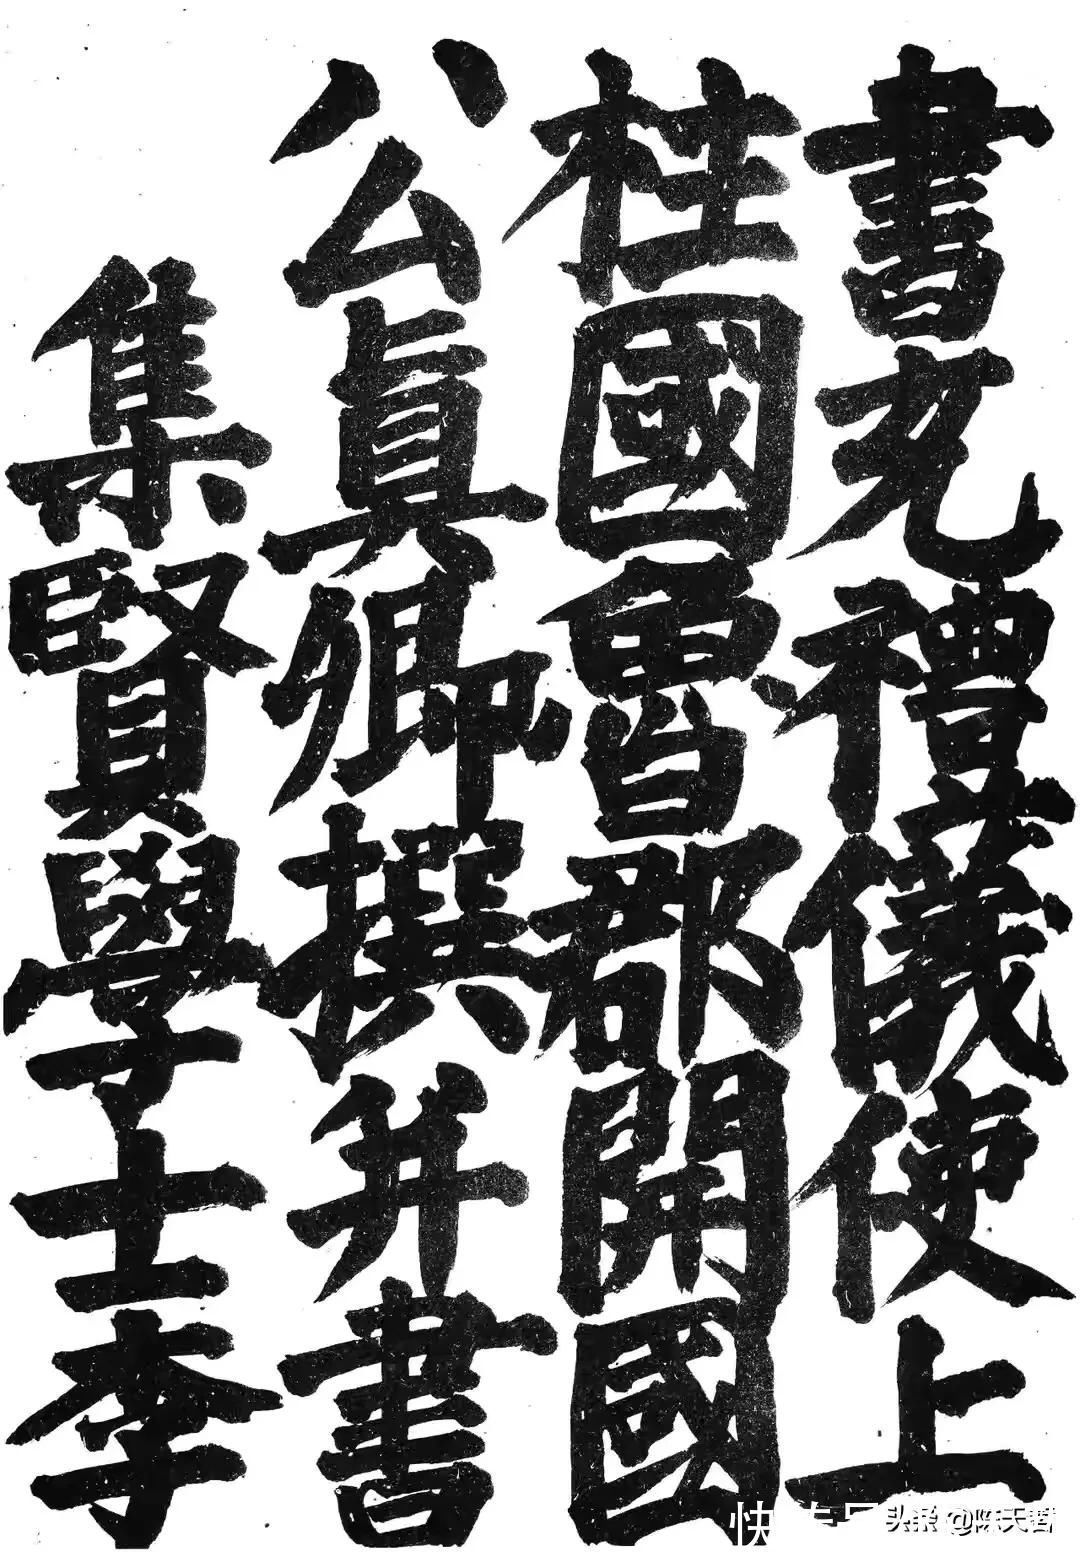 書充禮儀使上
柱國魯郡開國
公真卿撰并書
集賢學士李
头条 @陈天哲